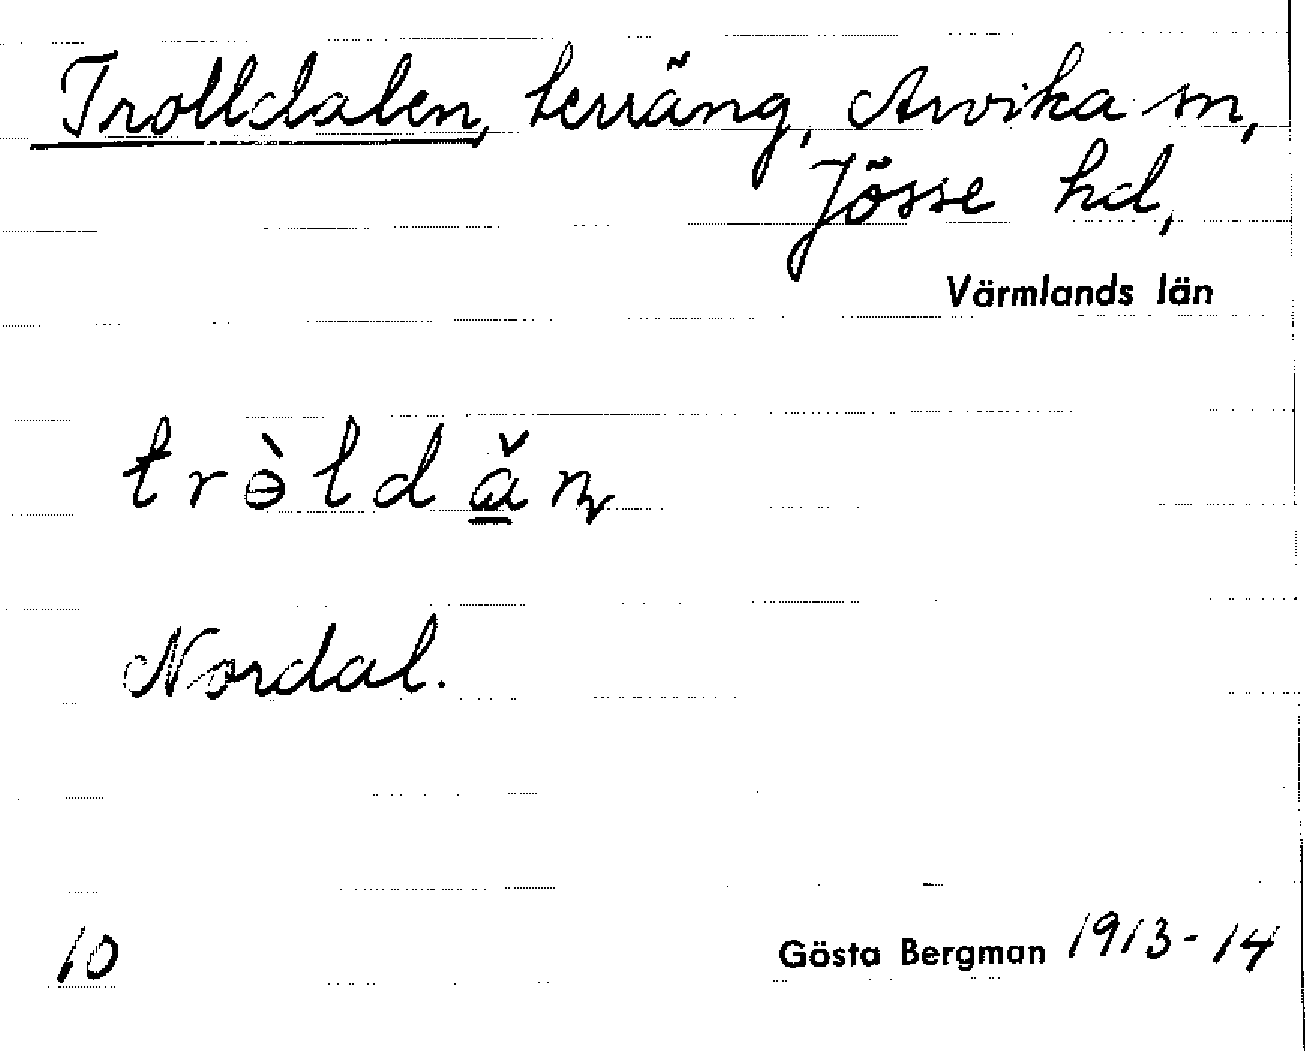 Trolldalen, terräng, Arvika sn,
Jösse hd,
Värmlands län
trɵ̀ldα̲̌ɳ
Nordal.
10
Gösta Bergman 1913-14